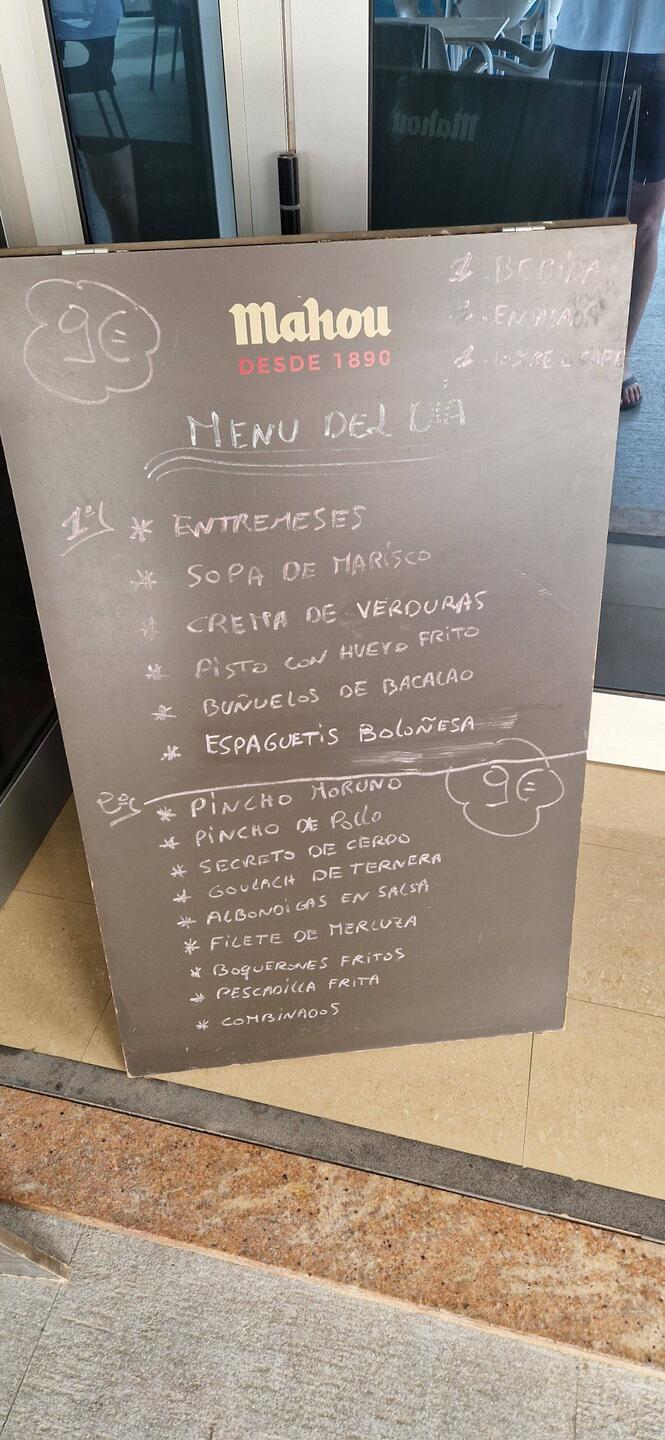 9€
Mahou
DESDE 1890
1 BEBIDA
1
1 POSTRE O CAFÉ
MENU DEL DÍA
1º(
* ENTREMESES
* SOPA DE MARÍSCO
* CREMA DE VERDURAS
* PISTO CON HUEVO FRITO
* BUÑUELOS DE BACALAO
* ESPAGUETIS BOLOÑESA
9€
2º(
* PINCHO MORUNO
* PINCHO DE POLLO
* SECRETO DE CERDO
* GOULACH DE TERNERA
* ALBONDIGAS EN SALSA
* FILETE DE MERLUZA
* BOQUERONES FRITOS
* PESCADILLA FRITA
* COMBINADOS